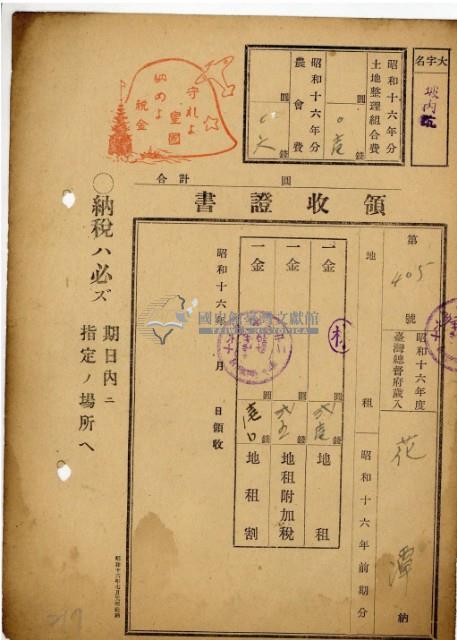 大字名
坡內坑
昭和十六年分
土地整理組合費
圓
錢
昭和十六年分
農會費
圓
〇六錢
合計 圓
守れよ
皇國
納めよ
税金
領收證書
第405號
昭和十六年度
臺灣總督府歲入
花潭納
地租
昭和十六年前期分
一金 圓 錢 地租
一金 圓 錢 地租附加稅
一金 圓 錢 地租割
昭和十六年 月 日領收
國史館臺灣文獻館
TAIWAN HISTORICA
〇納稅ハ必ズ
期日內ニ
指定ノ場所ヘ